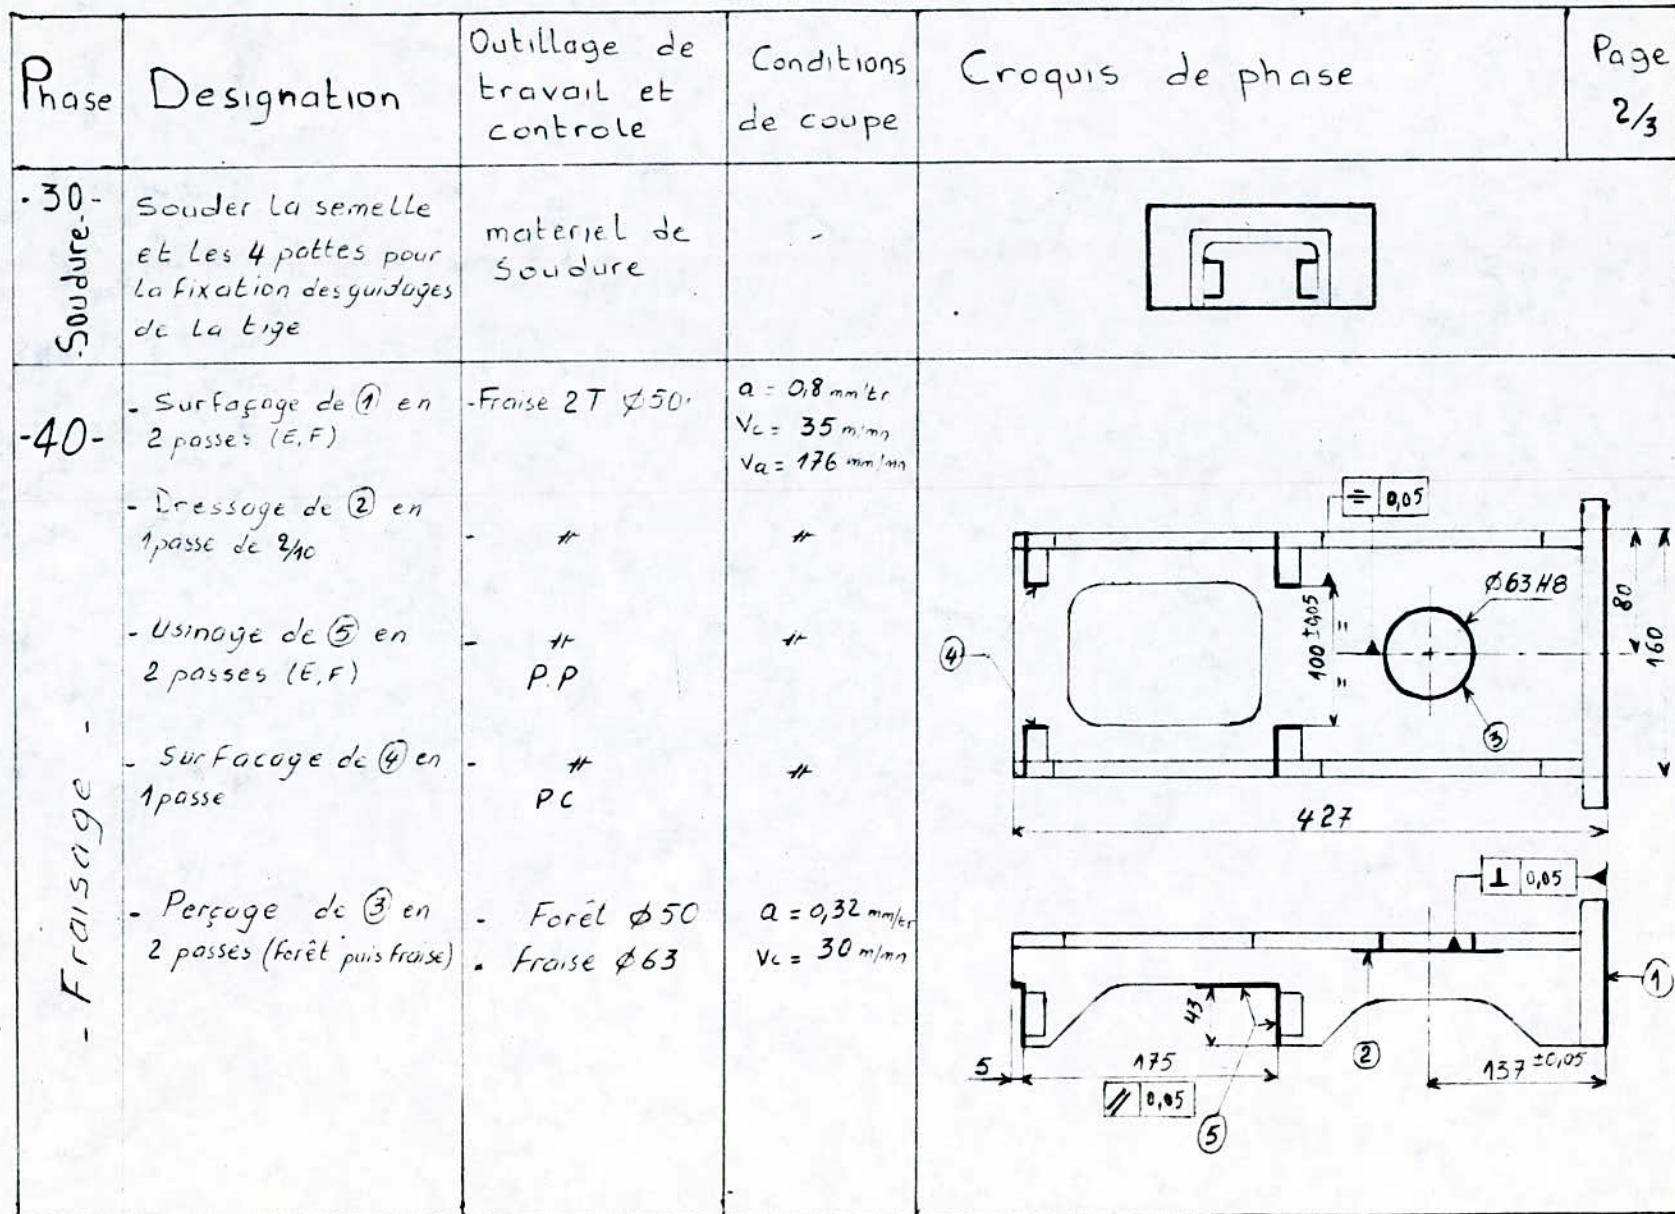 Phase
Designation
Outillage de
travail et
controle
Conditions
de coupe
Croquis de phase
Page
2/3
-30-
-Soudure-
Souder la semelle
et les 4 pattes pour
la fixation des guidages
de la tige
materiel de
Soudure
-
-40-
- Fraisage -
- Surfaçage de ① en
2 passes (E, F)
- Fraise 2T Ø50.
a = 0,8 mm/tr
Vc = 35 m/mn
Va = 176 mm/mn
- Dressage de ② en
1 passe de 2/10
- //
//
- Usinage de ⑤ en
2 passes (E, F)
- //
P.P
//
- Surfacage de ④ en
1 passe
- //
PC
//
- Perçage de ③ en
2 passes (Forêt puis fraise)
- Forêt Ø50
- Fraise Ø63
a = 0,32 mm/tr
Vc = 30 m/mn
0,05
Ø63 H8
80
160
100 ±0,05
=
=
④
③
427
⊥ 0,05
①
43
②
5
175
137 ±0,05
// 0,05
⑤